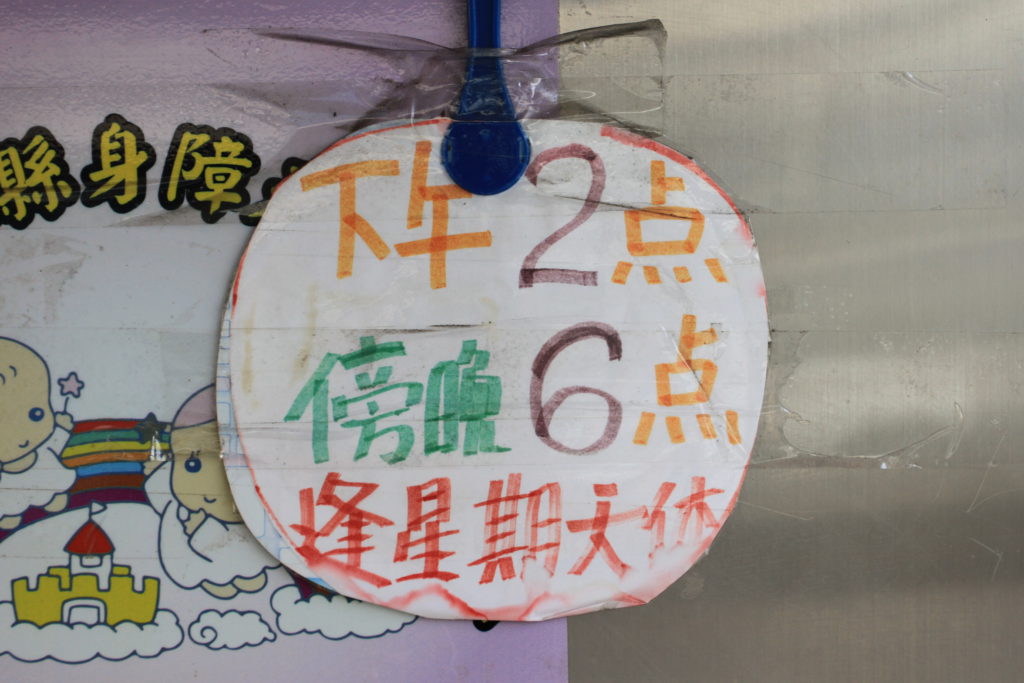 縣身障
下午2点
傍晚6点
逢星期天休